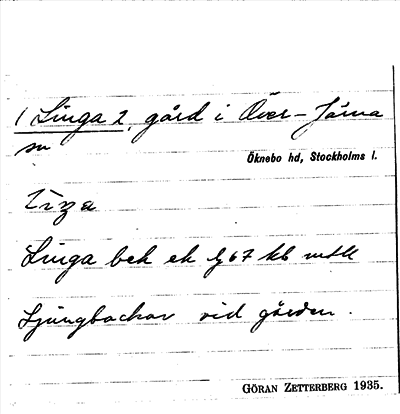 1 Linga 2, gård i Över-Järna
sn
Öknebo hd, Stockholms l.
Linga bek ek lj 67 kb mtl
Ljungbackar vid gården.
GÖRAN ZETTERBERG 1935.